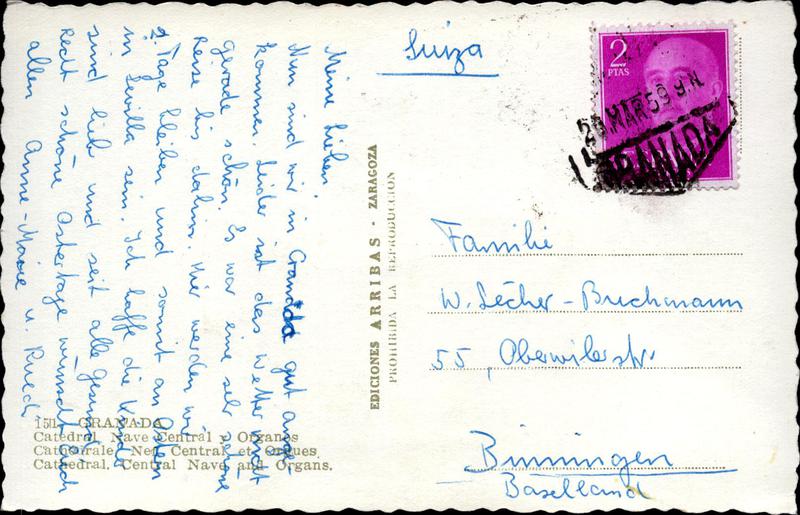 Meine Lieben,
Nun sind wir in Granada gut ange-
kommen. Leider ist das Wetter nicht
gerade schön. Es war eine sehr schöne
Reise bis dahin. Hier werden wir
2 Tage bleiben und somit an Ostern
in Sevilla sein. Ich hoffe die Kinder
sind lieb und seit alle gesund.
Recht schöne Ostertage wünscht Euch
allen Anne-Marie u. Ruedi
151. GRANADA
Catedral. Nave Central y Organos
Cathédrale. Nef Central et Orgues.
Cathedral. Central Nave and Organs.
EDICIONES ARRIBAS · ZARAGOZA
PROHIBIDA LA REPRODUCCION
Suiza
2
PTAS
MAR 59 9.N
GRANADA
Familie
W. Lécher-Buchmann
55, Oberwilerstr.
Binningen
Baselland